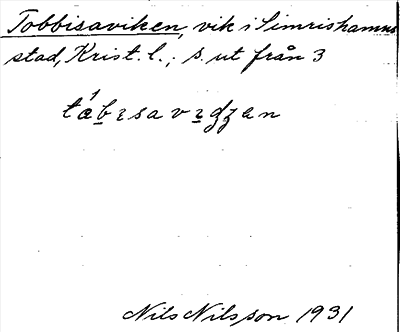 Tobbisaviken, vik i Simrishamns
stad, Krist. l.; s. ut från 3
Nils Nilsson 1931